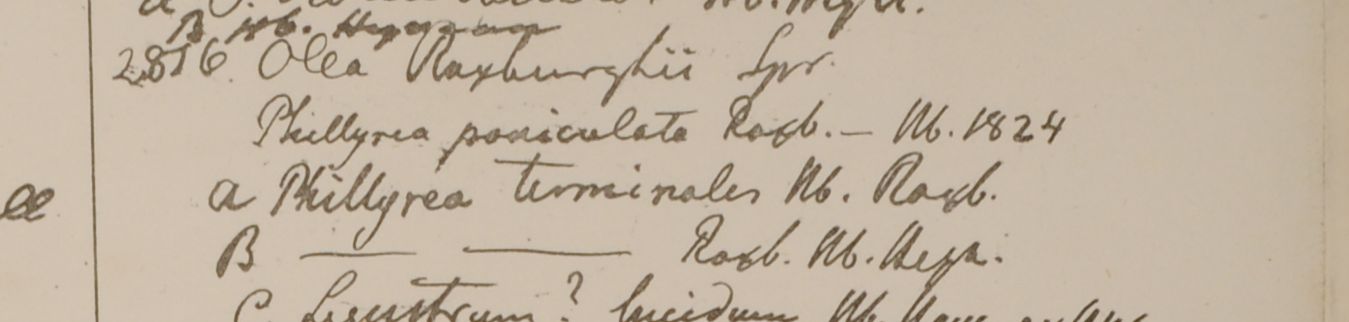 B Hb. Heyneana
2816 Olea Roxburghii Spr.
Phillyrea paniculata Roxb. — Hb. 1824
a Phillyrea terminales Hb. Roxb.
B —— ——— Roxb. Hb. Heyn.
C Ligustrum? lucidum Hb.